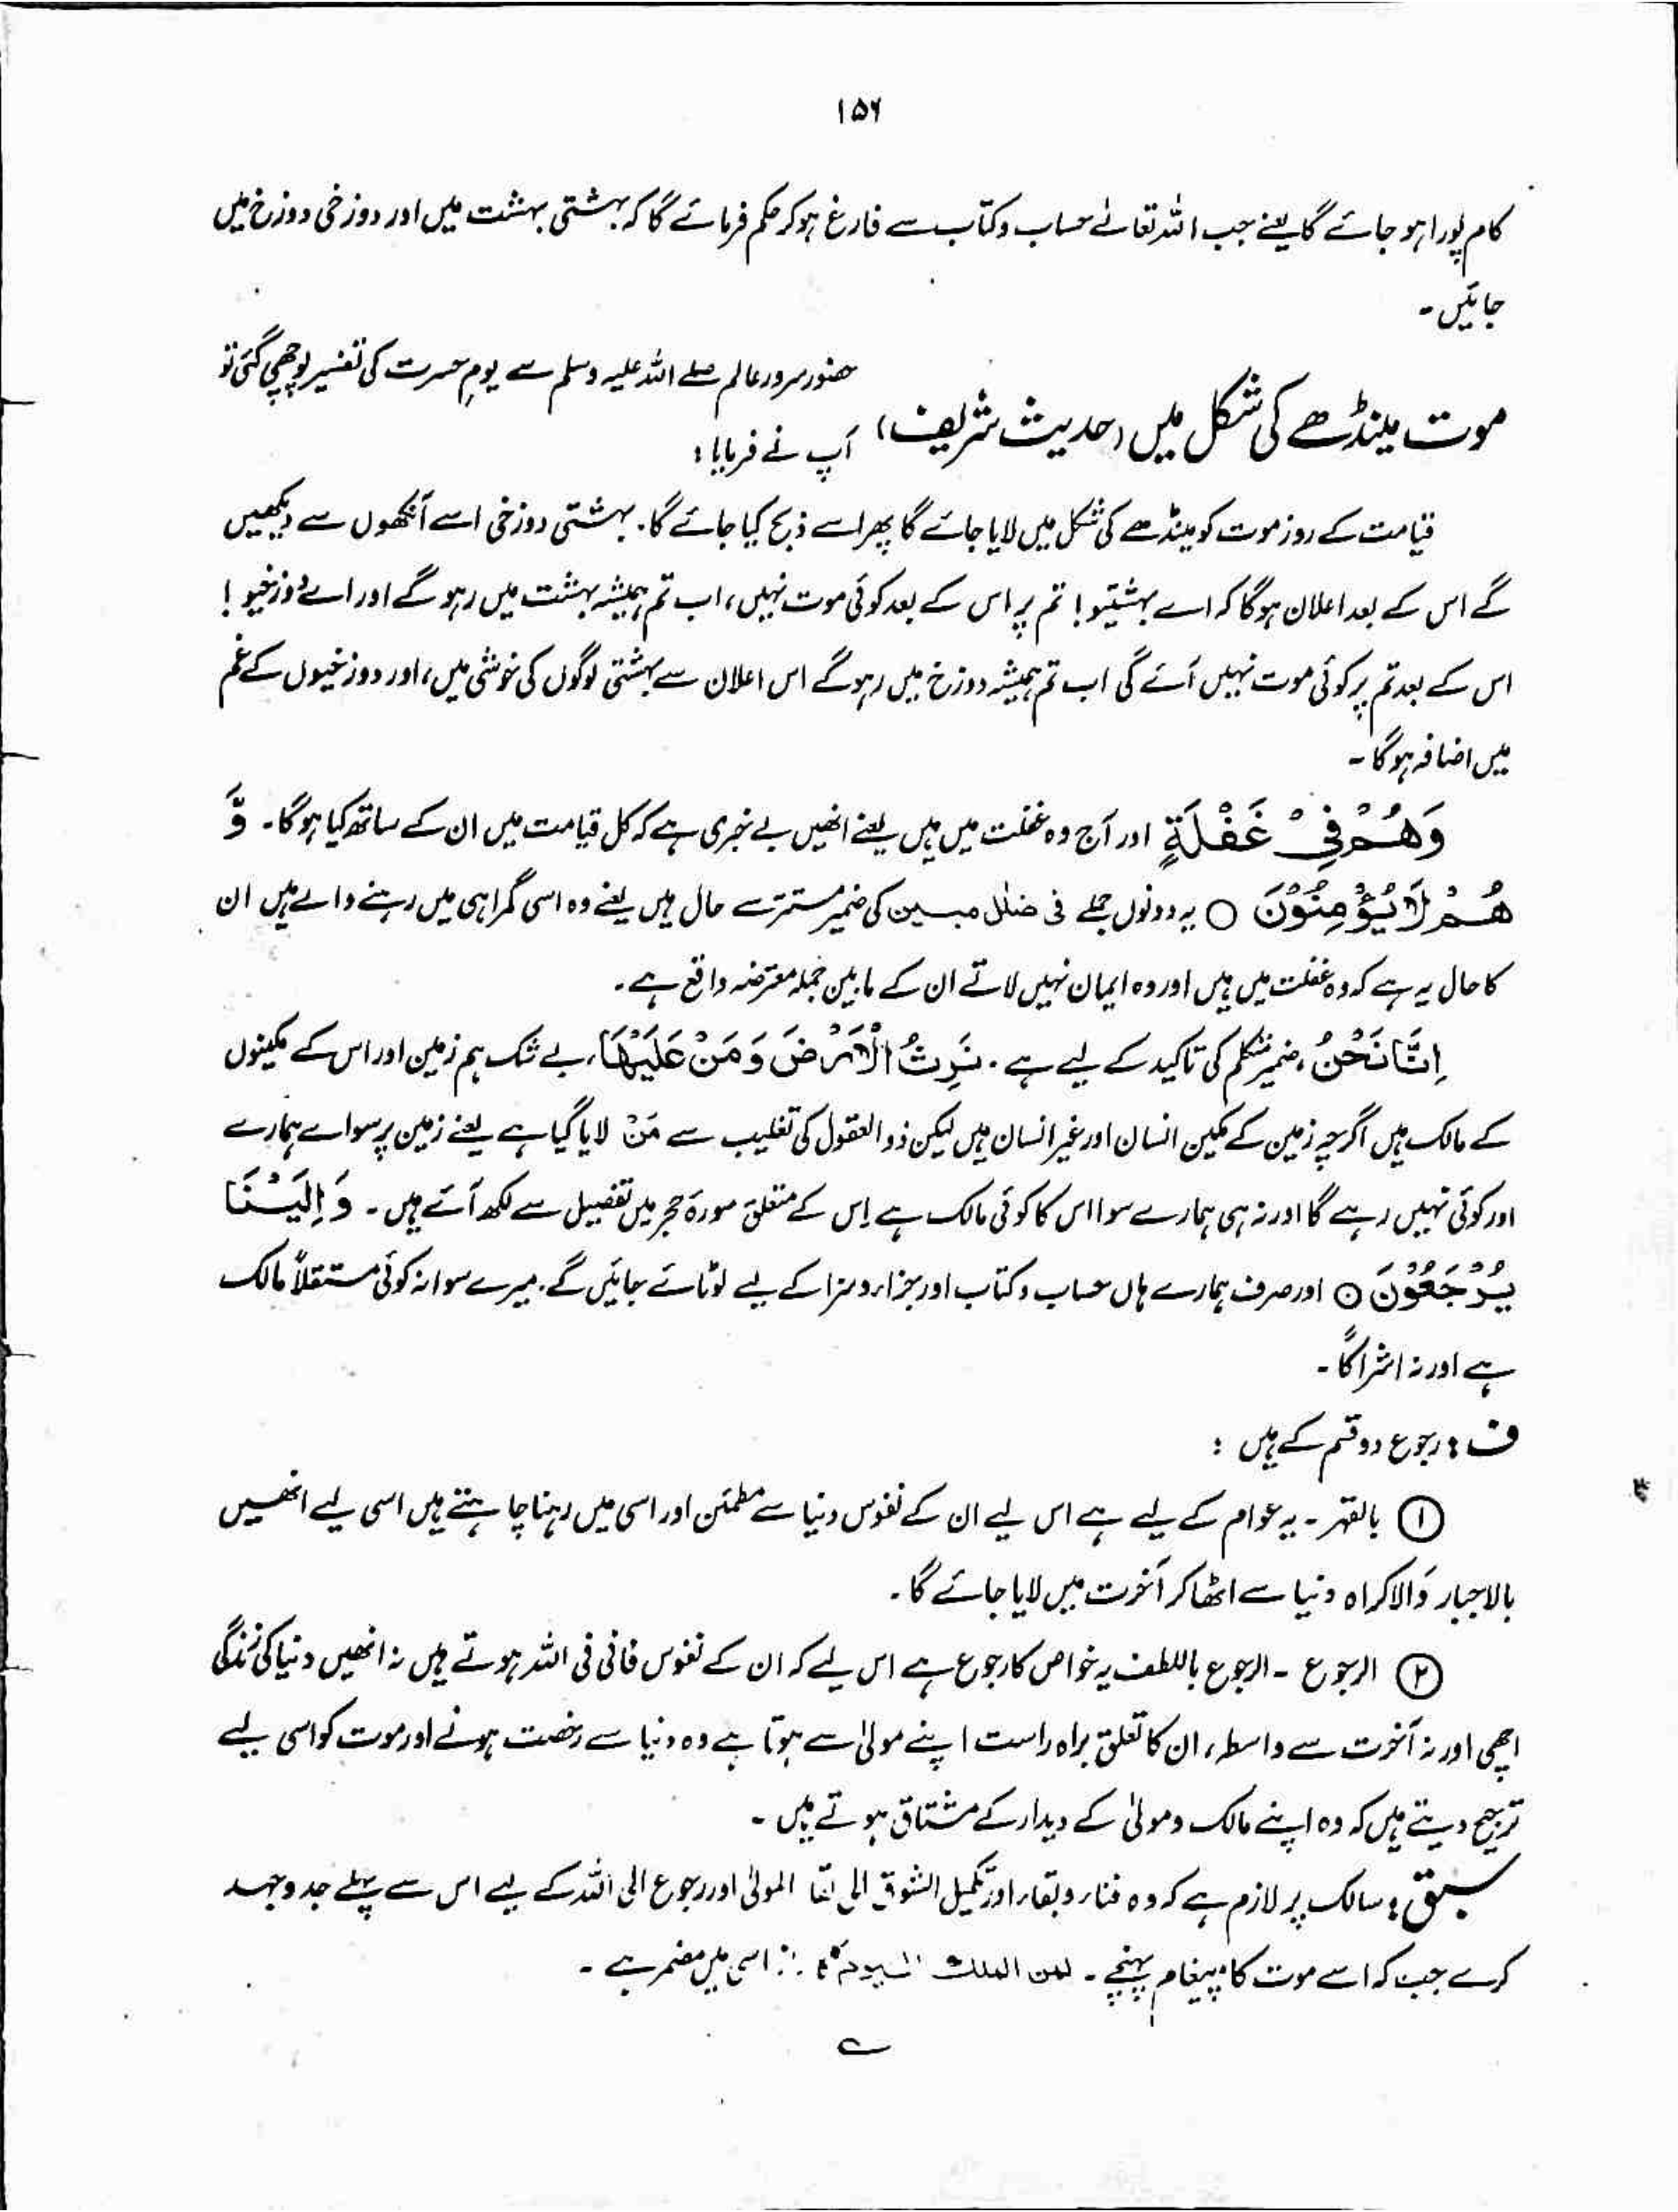 ۱۵۶
کام پورا ہو جائے گا یعنے جب اللہ تعالےٰ حساب و کتاب سے فارغ ہو کر حکم فرمائے گا کہ بہشتی بہشت میں اور دوزخی دوزخ میں
جائیں ۔
موت مینڈھے کی شکل میں (حدیث شریف) حضور سرور عالم صلے اللہ علیہ وسلم سے یومِ حسرت کی تفسیر پوچھی گئی تو
آپ نے فرمایا :
قیامت کے روز موت کو مینڈھے کی شکل میں لایا جائے گا پھر اسے ذبح کیا جائے گا۔ بہشتی دوزخی اسے آنکھوں سے دیکھیں
گے اس کے بعد اعلان ہوگا کہ اے بہشتیو! تم پر اس کے بعد کوئی موت نہیں، اب تم ہمیشہ بہشت میں رہو گے اور اے دوزخیو !
اس کے بعد تم پر کوئی موت نہیں آئے گی اب تم ہمیشہ دوزخ میں رہوگے اس اعلان سے بہشتی لوگوں کی خوشی میں، اور دوزخیوں کے غم
میں اضافہ ہوگا ۔
وَهُمْ فِیْ غَفْلَةٍ اور آج وہ غفلت میں ہیں یعنے انھیں بے خبری ہے کہ کل قیامت میں ان کے ساتھ کیا ہوگا۔ وَّ
هُمْ لَا يُؤْمِنُوْنَ ○ یہ دونوں جملے فی ضلٰل مبین کی ضمیر مستتر سے حال ہیں یعنے وہ اسی گمراہی میں رہنے والے ہیں ان
کا حال یہ ہے کہ وہ غفلت میں ہیں اور وہ ایمان نہیں لاتے ان کے مابین جملہ معترضہ واقع ہے ۔
اِنَّا نَحْنُ، ضمیر متکلم کی تاکید کے لیے ہے ۔ نَرِثُ الْاَرْضَ وَمَنْ عَلَيْهَا، بے شک ہم زمین اور اس کے مکینوں
کے مالک ہیں اگرچہ زمین کے مکین انسان اور غیر انسان ہیں لیکن ذوالعقول کی تغلیب سے مَنْ لایا گیا ہے یعنے زمین پر سوائے ہمارے
اور کوئی نہیں رہے گا اور نہ ہی ہمارے سوا اس کا کوئی مالک ہے اِس کے متعلق سورۃ حجر میں تفصیل سے لکھ آئے ہیں ۔ وَاِلَيْنَا
يُرْجَعُوْنَ ○ اور صرف ہمارے ہاں حساب و کتاب اور جزاء و سزا کے لیے لوٹائے جائیں گے۔ میرے سوا نہ کوئی مستقلاً مالک
ہے اور نہ اشراکاً ۔
ف : رجوع دو قسم کے ہیں :
① بالقہر ۔ یہ عوام کے لیے ہے اس لیے ان کے نفوس دنیا سے مطمئن اور اسی میں رہنا چاہتے ہیں اسی لیے انھیں
بالاجبار وَالاکراہ دنیا سے اٹھا کر آخرت میں لایا جائے گا ۔
② الرجوع ۔ الرجوع باللطف یہ خواص کا رجوع ہے اس لیے کہ ان کے نفوس فانی فی اللہ ہوتے ہیں نہ انھیں دنیا کی زندگی
اچھی اور نہ آخرت سے واسطہ، ان کا تعلق براہ راست اپنے مولیٰ سے ہوتا ہے وہ دنیا سے رخصت ہونے اور موت کو اسی لیے
ترجیح دیتے ہیں کہ وہ اپنے مالک و مولیٰ کے دیدار کے مشتاق ہوتے ہیں ۔
سبق : سالک پر لازم ہے کہ وہ فناء و بقاء اور تکمیل الشوق الی لقا المولیٰ اور رجوع الی اللہ کے لیے اس سے پہلے جد و جہد
کرے جب کہ اسے موت کا پیغام پہنچے ۔ لمن الملك اليوم کا اسی میں مضمر ہے ۔